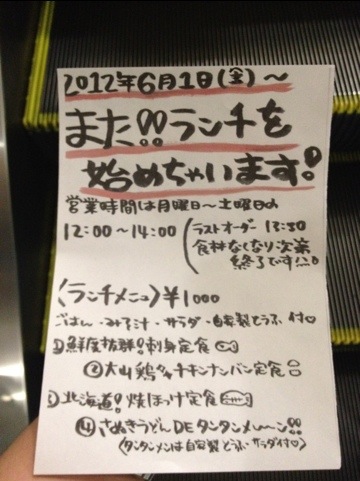 2012年6月1日(金)〜
また!!ランチを
始めちゃいます!
営業時間は月曜日〜土曜日の
12:00〜14:00
ラストオーダー 13:30
食材なくなり次第
終了です!!
〈ランチメニュー〉¥1000
ごはん・みそ汁・サラダ・自家製とうふ 付♡
①鮮度抜群!刺身定食
②大山鶏タルタルチキンナンバン定食
③北海道!焼ほっけ定食
④さぬきうどんDEタンタンメ〜ン!!
(タンタンメンは自家製とうふ サラダ付♡)